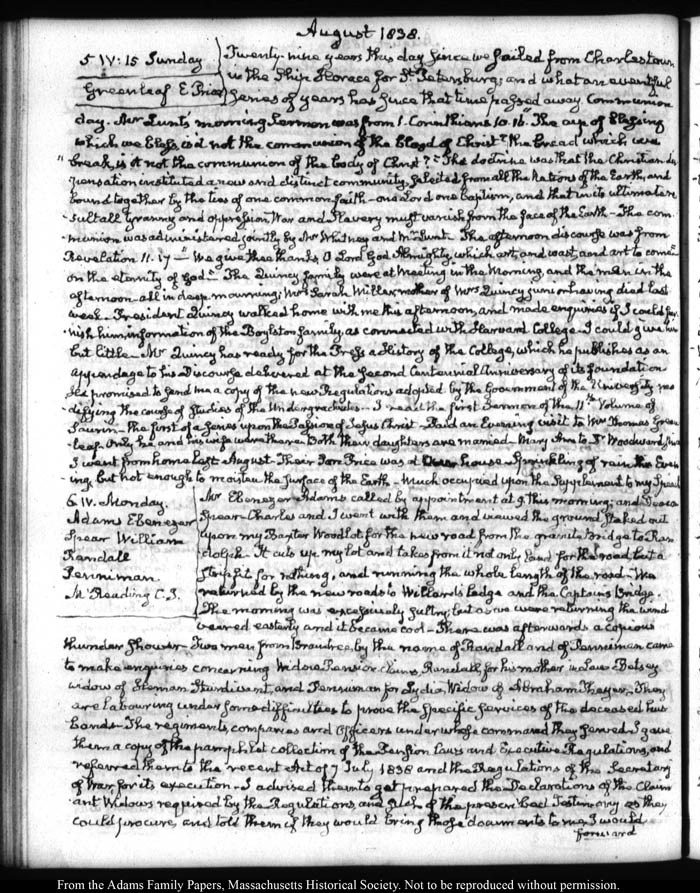 August 1838.
5 IV: 15 Sunday
Greenleaf E Price
Twenty-nine years this day since we sailed from Charlestown
in the Ship Horace for St. Petersburg; and what an eventful
series of years has since that time passed away. Communion
day. Mr Lunt's morning Sermon was from 1. Corinthians 10.16. The cup of blessing
which we bless, is it not the communion of the blood of Christ? the bread which we
"break, is it not the communion of the body of Christ?" The doctrine was that the Christian dis-
pensation instituted a new and distinct community, selected from all the Nations of the Earth, and
bound together by the ties of one common faith - one Lord one baptism, and that in its ultimate re-
sult all tyranny and oppression, War and Slavery must vanish from the face of the Earth - The com-
munion was administered jointly by Mr Whitney and Mr Lunt. The afternoon discourse was from
Revelation 11.17 - We give thee thanks, O Lord God Almighty, which art, and wast, and art to come -
on the eternity of God - The Quincy family were at Meeting in the Morning, and the men in the
afternoon - all in deep mourning; Mrs Sarah Miller, mother of Mrs Quincy junior having died last
week. President Quincy walked home with me this afternoon, and made enquiries if I could fur-
nish him information of the Boylston family, as connected with Harvard College. I could give him
but little - Mr Quincy has ready for the Press a History of the College, which he publishes as an
appendage to his Discourse delivered at the second Centennial Anniversary of its foundation
He promised to send me a copy of the new Regulations adopted by the Government of the University mo-
difying the course of Studies of the Undergraduates - I read the first Sermon of the 11th Volume of
Saurin - the first of a series upon the Passion of Jesus Christ - Paid an Evening visit to Mr Thomas Green-
leaf. Only he and his wife were there. Both their daughters are married - Mary Ann to Dr Woodward, since
I went from home last August. Their Son Price was at our house - Sprinkling of rain this Even-
ing, but not enough to moisten the surface of the Earth - Much occupied upon the Supplement to my Speech
6. IV. Monday
Adams Ebenezer
Spear William
Randall
Penniman
M. Reading C. 3.
Mr Ebenezer Adams called by appointment at 9 this morning; and Deacon
Spear - Charles and I went with them and viewed the ground staked out
upon my Baxter Woodlot for the new road from the gravel bridge to Ran-
dolph - It cuts up my lot and takes from it not only land for the road, but a
strip fit for nothing, and running the whole length of the road - We
returned by the new roads to Willard's Ledge and the Captain's Bridge.
The morning was excessively sultry; but as we were returning the wind
veered easterly and it became cool - There was afterwards a copious
thunder shower - Two men from Braintree, by the name of Randall and of Penniman came
to make enquiries concerning Widows Pension claims, Randall for his mother in law Betsey
widow of Heman Sturdivant, and Penniman for Lydia, Widow of Abraham Thayer. They
are labouring under some difficulties to prove the specific services of the deceased hus-
bands - The regiments, companies and Officers under whose command they served. I gave
them a copy of the pamphlet collection of the Pension Laws and Executive Regulations, and
referred them to the recent Act of 7 July 1838 and the Regulations of the Secretary
of War for its execution - I advised them to get prepared the Declarations of the Claim-
ant Widows required by the Regulations and such of the prescribed Testimony as they
could procure, and told them if they would bring those documents to me, I would
forward
From the Adams Family Papers, Massachusetts Historical Society. Not to be reproduced without permission.